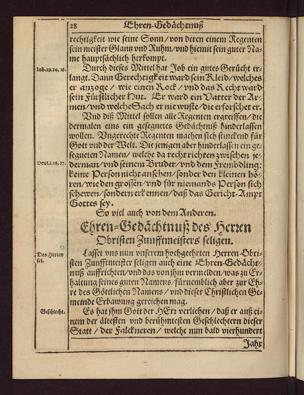 28 Ehren-Gedächtnuß
rechtigkeit wie seine Sonn/ von deren einem Regenten
sein meister Glantz und Ruhm/ und hiemit sein guter Na-
me hauptsächlich herkompt.
Durch dieses Mittel hat Job ein gutes Gerücht er-
langt. Dann Gerechtigkeit ward sein Kleid/ welches
er anzoge/ wie einen Rock/ und das Recht ward
sein Fürstlicher Hut. Er ward ein Vatter der Ar-
men/ und welche Sach er nit wußte/ die erforschet er.
Und diß Mittel sollen alle Regenten ergreiffen/ die
dermalen eins ein gesegnetes Gedächtnuß hinderlassen
wollen. Ungerechte Regenten machen sich stinckend für
Gott und der Welt. Die jenigen aber hinderlassen ein ge-
segneten Namen/ welche da recht richten zwischen je-
derman/ und seinem Bruder/ und dem Frembdling:
keine Person nicht ansehen/ sonder den kleinen hö-
ren/ wie den grossen/ und für niemands Person sich
schewen/ sondern erkennen/ daß das Gericht-Ampt
Gottes sey.
So viel auch von dem Anderen.
Ehren-Gedächtnuß des Herren
Obristen Zunfftmeisters seligen.
Lasset uns nun unserem hochgeehrten Herren Obri-
sten Zunfftmeister seligen auch eine Ehren-Gedächt-
nuß auffrichten/ und das von ihm vermelden/ was zu Er-
haltung seines guten Namens/ fürnemblich aber zur Eh-
re des Göttlichen Namens/ und dieser Christlichen Ge-
meinde Erbawung gereichen mag.
Es hat ihm Gott der HErr verliehen/ daß er auß ei-
nem der ältesten und berühmtesten Geschlechtern dieser
Statt/ der Falckneren/ welche nun bald vierhundert
Jahr
Des Herren
sel.
Geschlecht.